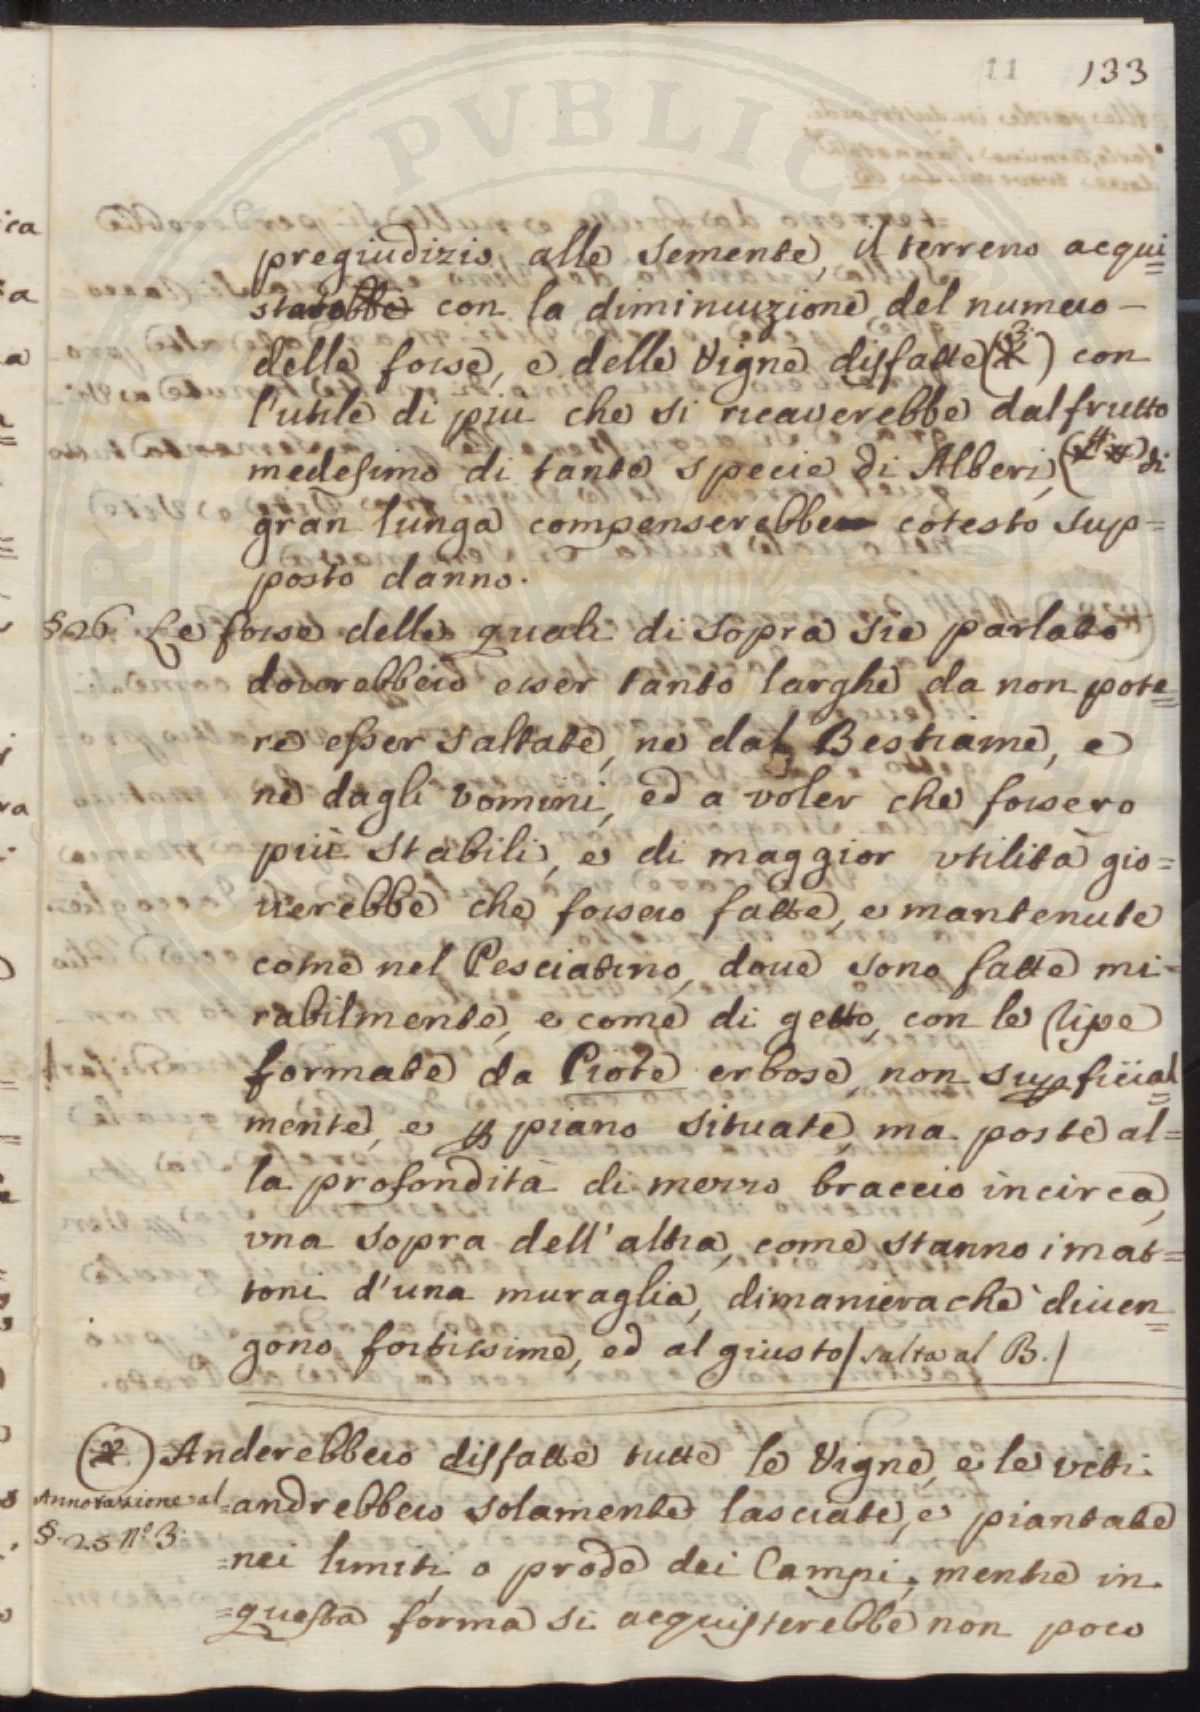 11 133
pregiudizio alle semente, il terreno acqui=
starebbe con la diminuizione del numero
delle fosse, e delle Vigne disfatte (3) con
l'utile di piu che si ricaverebbe dal frutto
medesimo di tante specie di Alberi, (4) di
gran lunga compenserebbe cotesto sup=
posto danno.
§ 26 Le fosse delle quali di sopra si è parlato
dovrebbero esser tanto larghe da non pote=
re esser saltate, ne dal Bestiame, e
ne dagli vomini, ed a voler che fossero
più stabili, e di maggior vtilità gio=
verebbe che fossero fatte, e mantenute
come nel Pesciatino, dove sono fatte mi=
rabilmente, e come di getto, con le ripe
formate da Piote erbose, non supficial
mente, e p piano situate, ma poste al=
la profondità di mezzo braccio incirca,
vna sopra dell'altra, come stanno i mat=
toni d'una muraglia, dimanierachè diven
gono fortissime, ed al giusto / salta al B. /
Anderebbero disfatte tutte le Vigne, e le viti
Annotazione al
§. 25 n.º 3.
=andrebbero solamente lasciate, e piantate
=nei limiti, o prode dei Campi, mentre in
=questa forma si acquisterebbe non poco